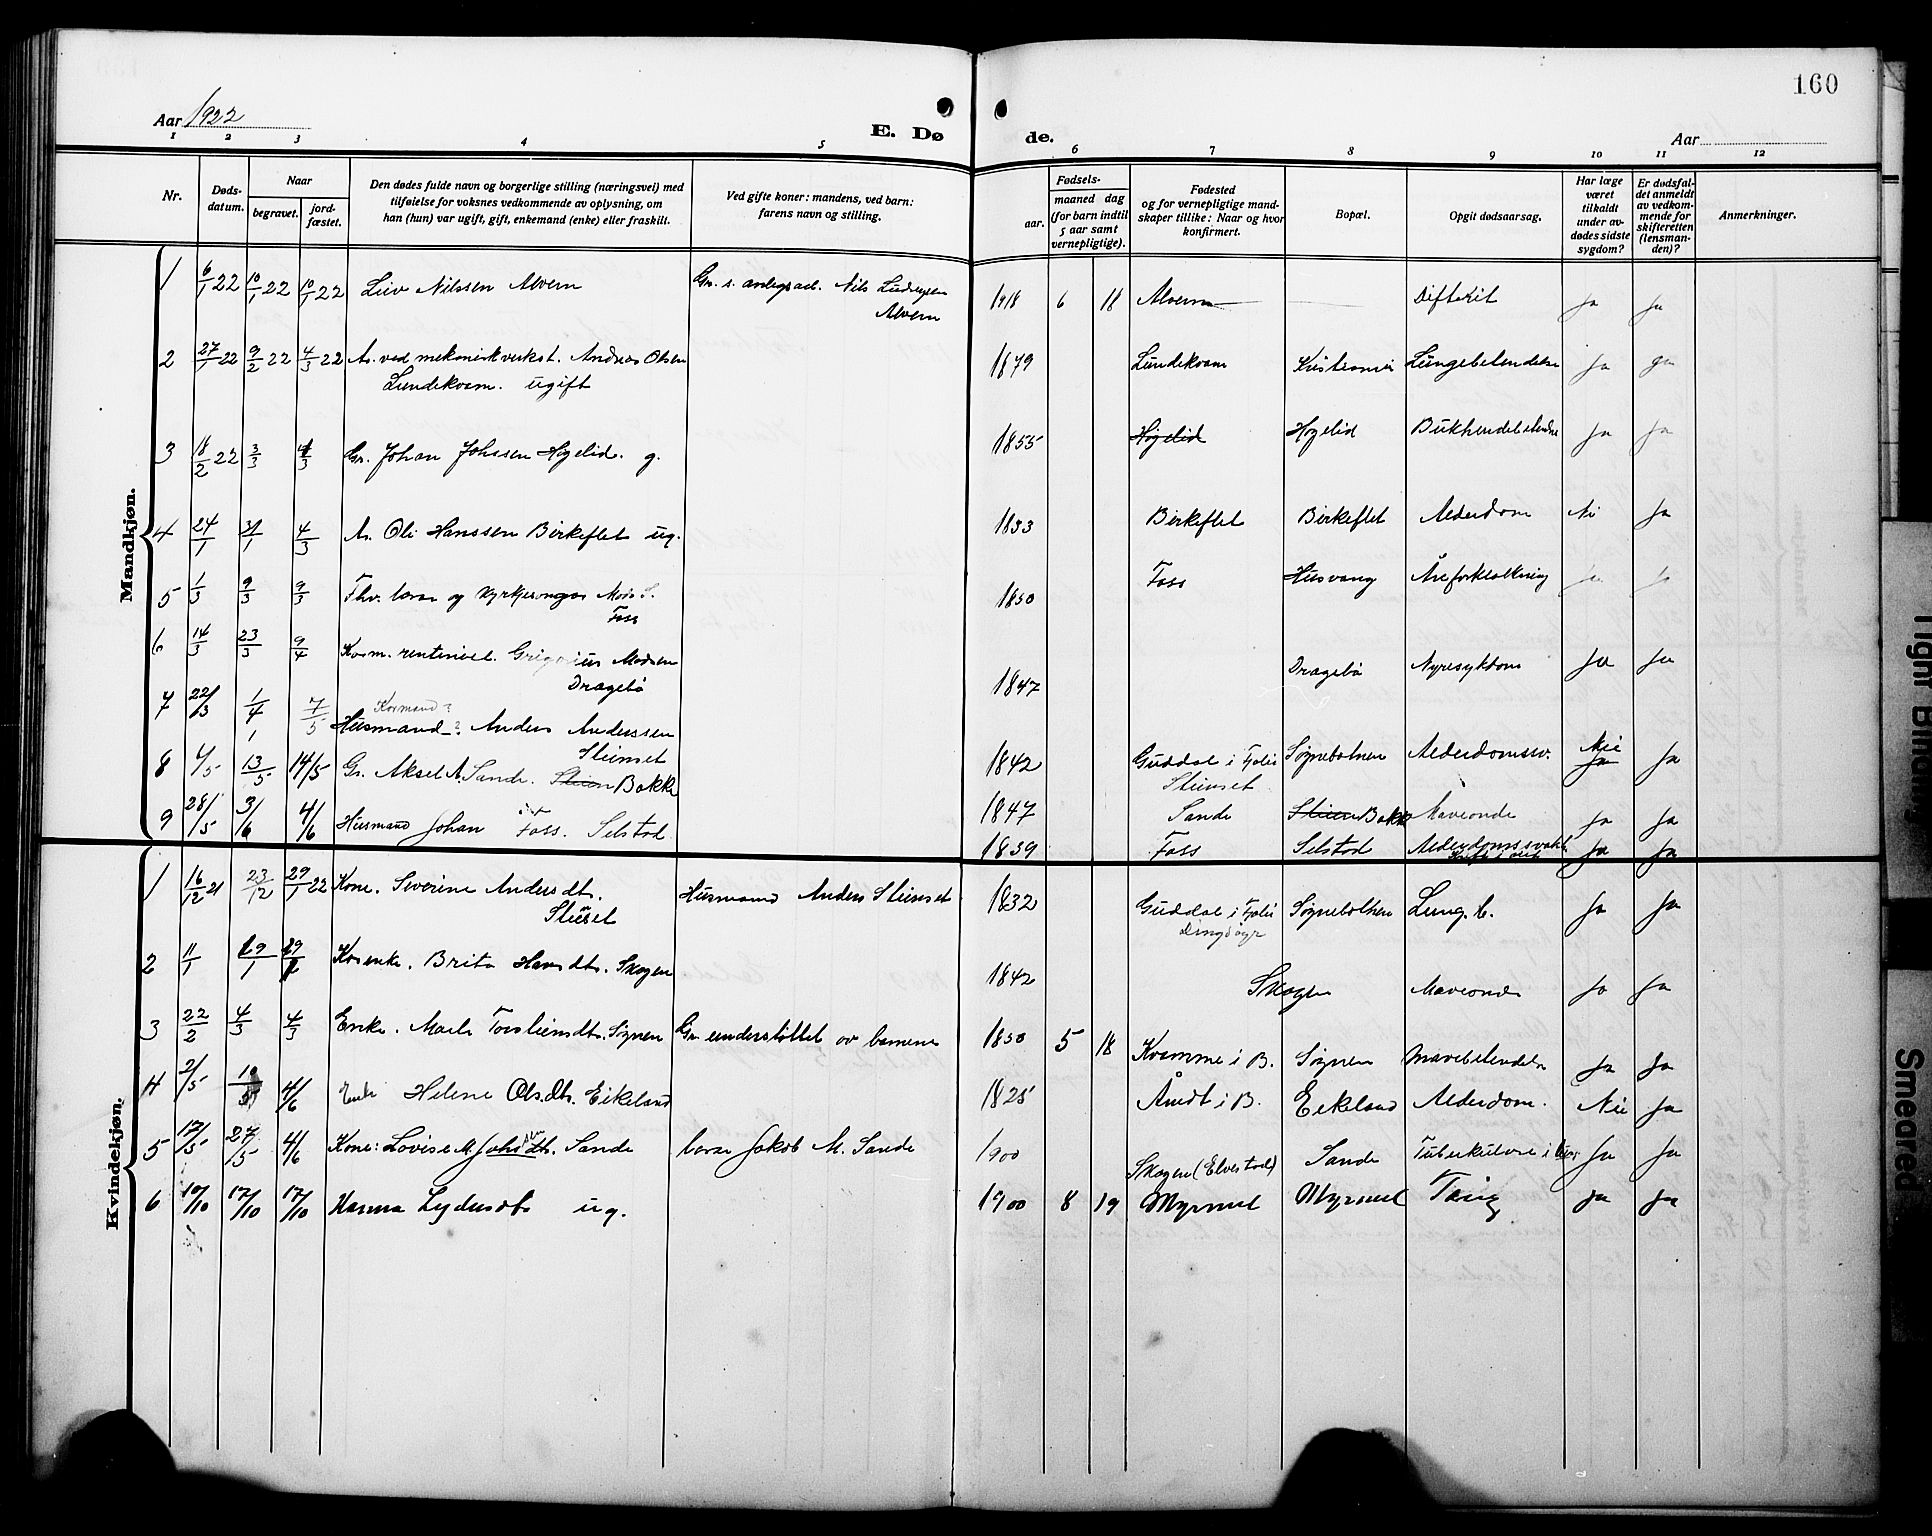 160
Aar 1922
E. Døde.
Aar
1 2 3 4 5 6 7 8 9 10 11 12
Nr.
Døds-
datum.
Naar
begravet.
jord-
fæstet.
Den dødes fulde navn og borgerlige stilling (næringsvei) med
tilføielse for voksnes vedkommende av oplysning, om
han (hun) var ugift, gift, enkemand (enke) eller fraskilt.
Ved gifte koner: mandens, ved barn:
farens navn og stilling.
Fødsels-
aar.
maaned dag
(for barn indtil
5 aar samt
vernepligtige).
Fødested
og for vernepligtige mand-
skaper tillike: Naar og hvor
konfirmert.
Bopæl.
Opgit dødsaarsag.
Har læge
været
tilkaldt
under av-
dødes sidste
sygdom?
Er dødsfal-
det anmeldt
av vedkom-
mende for
skifteretten
(lensman-
den)?
Anmerkninger.
Mandkjøn.
1 6/1 22 10/1 22 10/1 22 Liv Nilssen Alvern Gr. s. Nils Alvern 1918 6 18 Alvern Difterit ja ja
2 27/1 22 9/2 22 4/3 22 A. ved mekaniskverkst. Andreas Olsen
Lundekvam. ugift 1879 Lundekvam Kristiania Lungebetendelse ja ja
3 18/2 22 3/3 4/3 Gr. Johan Johssen Høgelid. g. 1855 Høgelid Høgelid ja ja
4 24/1 31/1 4/3 A. Ole Hanssen Birkeflet ug. 1833 Birkeflet Birkeflet Alderdom Nei ja
5 1/3 9/3 9/3 Fhv. lærar og kyrkjesongar Mons S.
Foss 1850 Foss Husvang Åreforkalkning ja ja
6 14/3 23/3 9/4 Kaarm. rentenist. Grigorius Madsen
Dragebø 1847 Dragebø Nyresykdom ja ja
7 22/3 1/4 7/5 Kaarmand?
Husmand? Anders Anderssen
Stienset 1842 Guddal i Fjaler
Stienset Søgnebotnen Alderdomssv. Nei ja ja
8 4/5 13/5 14/5 Gr. Aksel A. Sande. Stien Bakke 1847 Sande Stien Bakke Maveonde ja ja
9 28/5 3/6 4/6 Husmand Johan Foss. Selstad. 1839 Foss Selstad Alderdomssvakh. ja ja
Kvindekjøn.
1 16/12 21 23/12 29/1 22 Kone. Severine Andersdt.
Stienset Husmand Anders Stienset 1832 Guddal i Fjaler
Søgnebotnen Lung. b. ja ja
2 11/1 29/1 Kaarenke. Brita Hansdt. Skogen 1842 Skogen Maveonde ja ja
3 22/2 4/3 4/3 Enke. Marte Torsteinsdt. Søgnen Gr. understøttet av barnene 1850 5 18 Kvamme i B. Søgnen Mavebetendelse ja ja
4 2/5 10/5 4/6 Enke Helene Olsdt. Eikeland 1825 Åmdt i B. Eikeland Alderdom. Nei ja
5 17/5 27/5 4/6 Kone: Lovise M. Johsdt. Sande lærar Jakob M. Sande 1900 Skogen (Elvestad) Sande Tuberkulose i ja ja
6 10/10 17/10 17/10 Hanna Lydersdt ug. 1900 8 19 Myrmel Myrmel Tæring ja ja
Tight Binding
Smeared